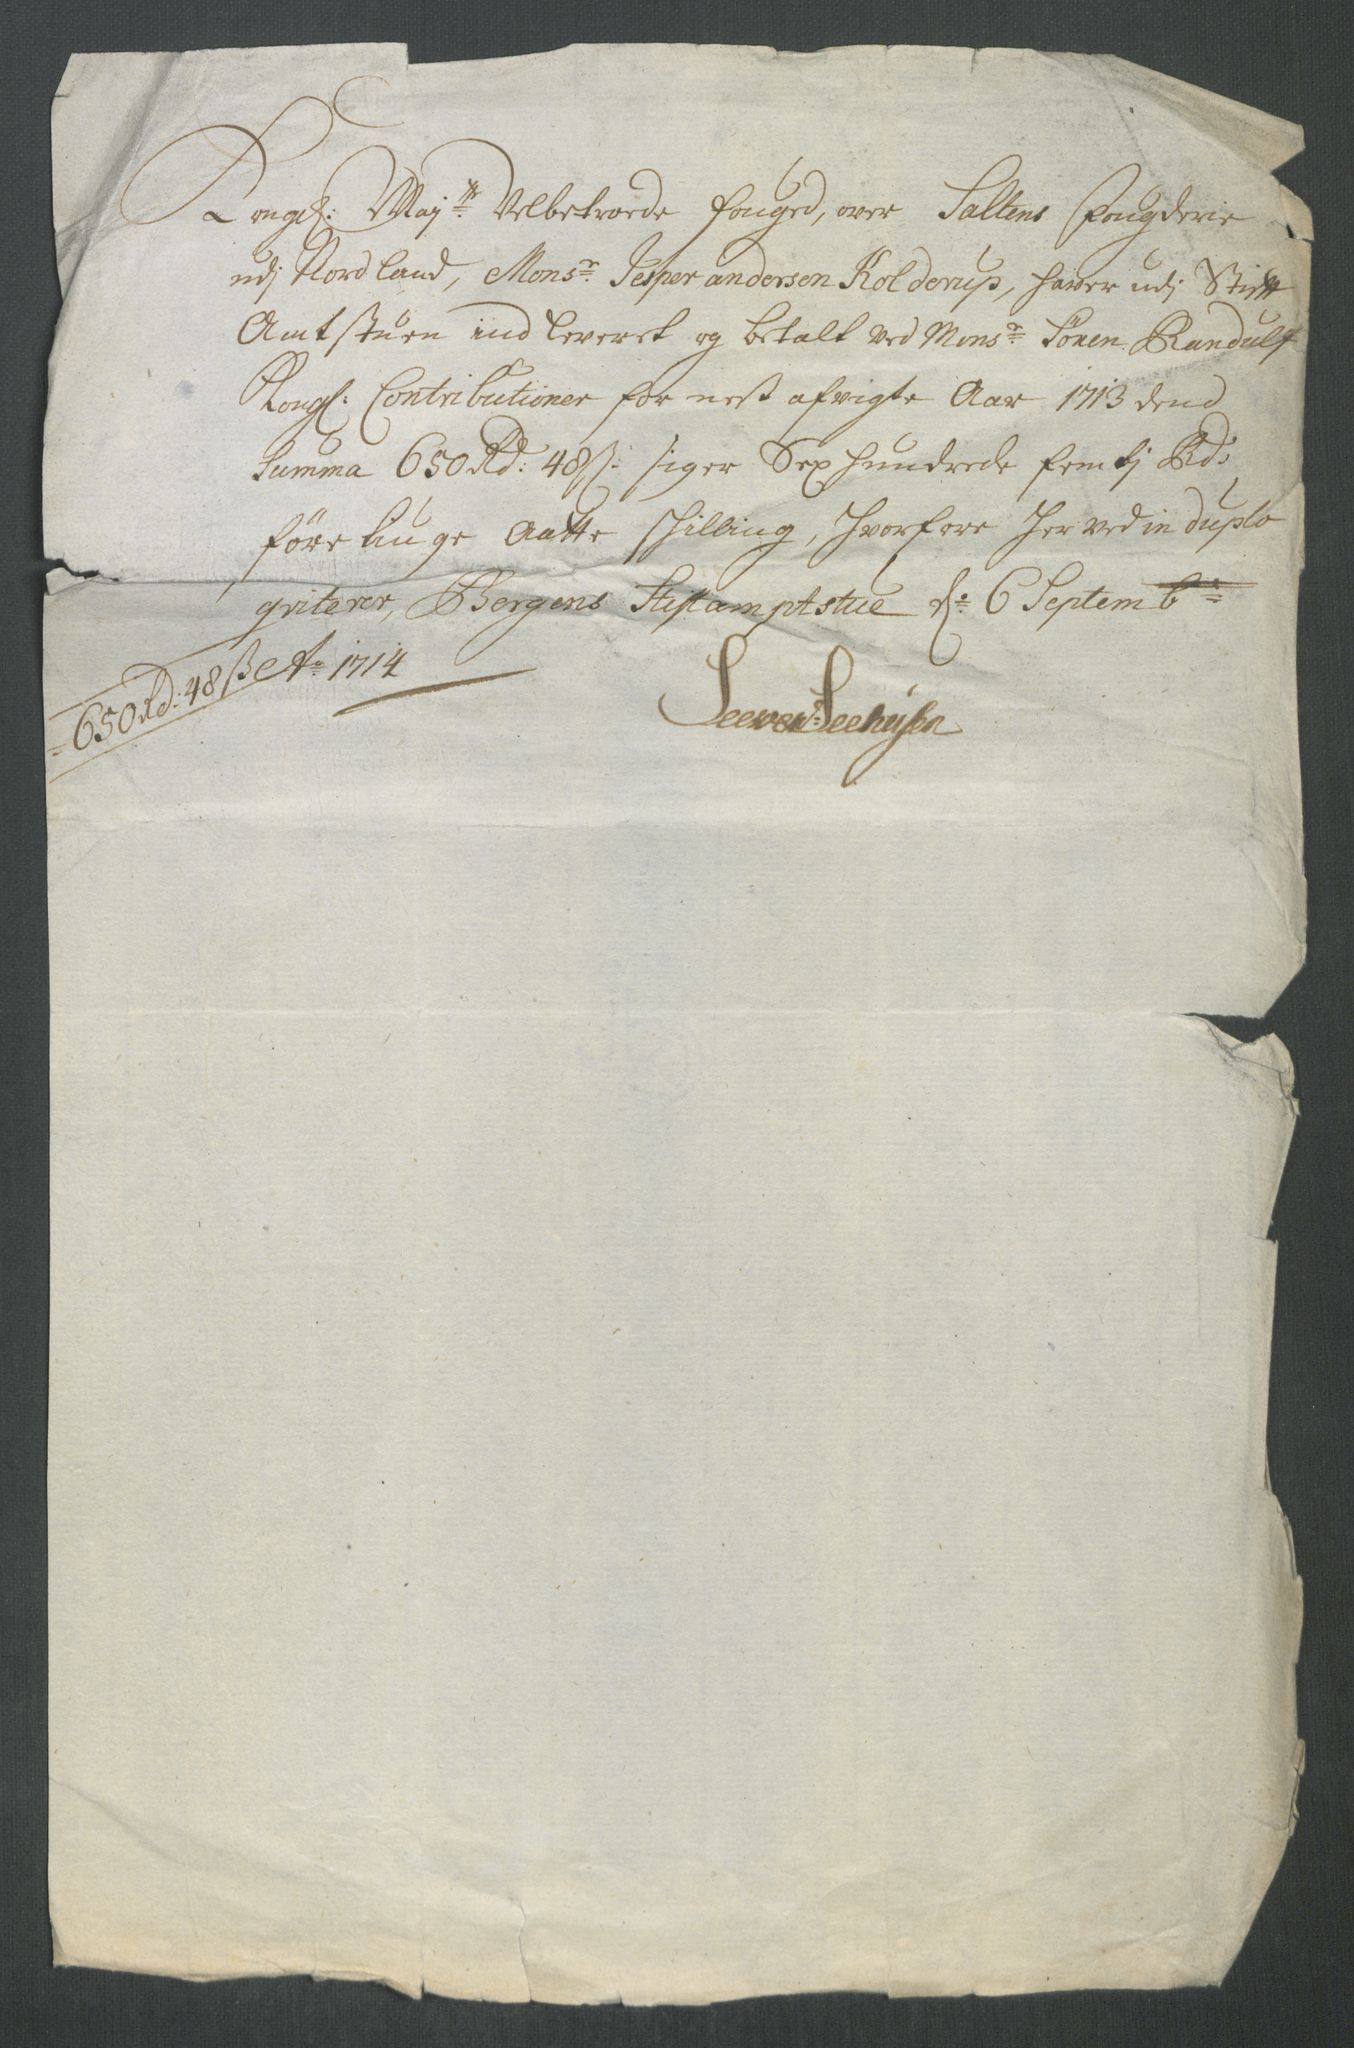 Kongel: Maj:ts Velbetroede fouged, over Saltens Fougderie
udj Nordland, Mons:r Jesper andersen Kolderup, hafver udj Stift
Amtstuen ind leveret og betalt ved Mons:r Sören Randulf
Kongl: Contributioner for nest afvigte Aar 1713 dend
Summa 650 Rd: 48 ß: siger Sexhundrede femtj Rd:
förretiuge Aatte schilling, hvorfore her ved in duplo
qviterer, Bergens Stiftamptstue d: 6 Septemb:
A:o 1714
650 Rd: 48 ß
Seehusen